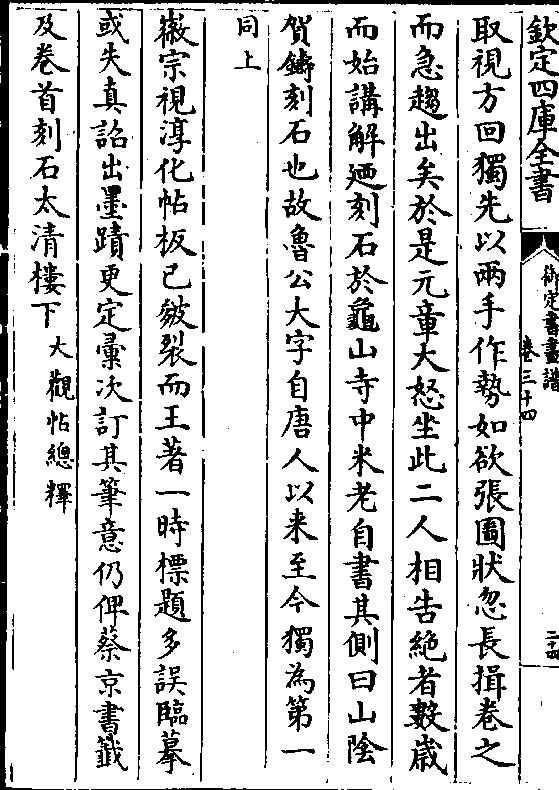 欽定四庫全書
御定書畫譜
卷三十四
二十四
取視方回獨先以兩手作勢如欲張圖狀忽長揖卷之
而急趨出矣於是元章大怒坐此二人相告絶者數歲
而始講解廼刻石於龜山寺中米老自書其側曰山陰
賀鑄刻石也故魯公大字自唐人以来至今獨為第一
同上
徽宗視淳化帖板已皴裂而王著一時標題多誤臨摹
或失真詔出墨蹟更定彚次訂其筆意仍俾蔡京書籖
及卷首刻石太清樓下 大觀帖總釋